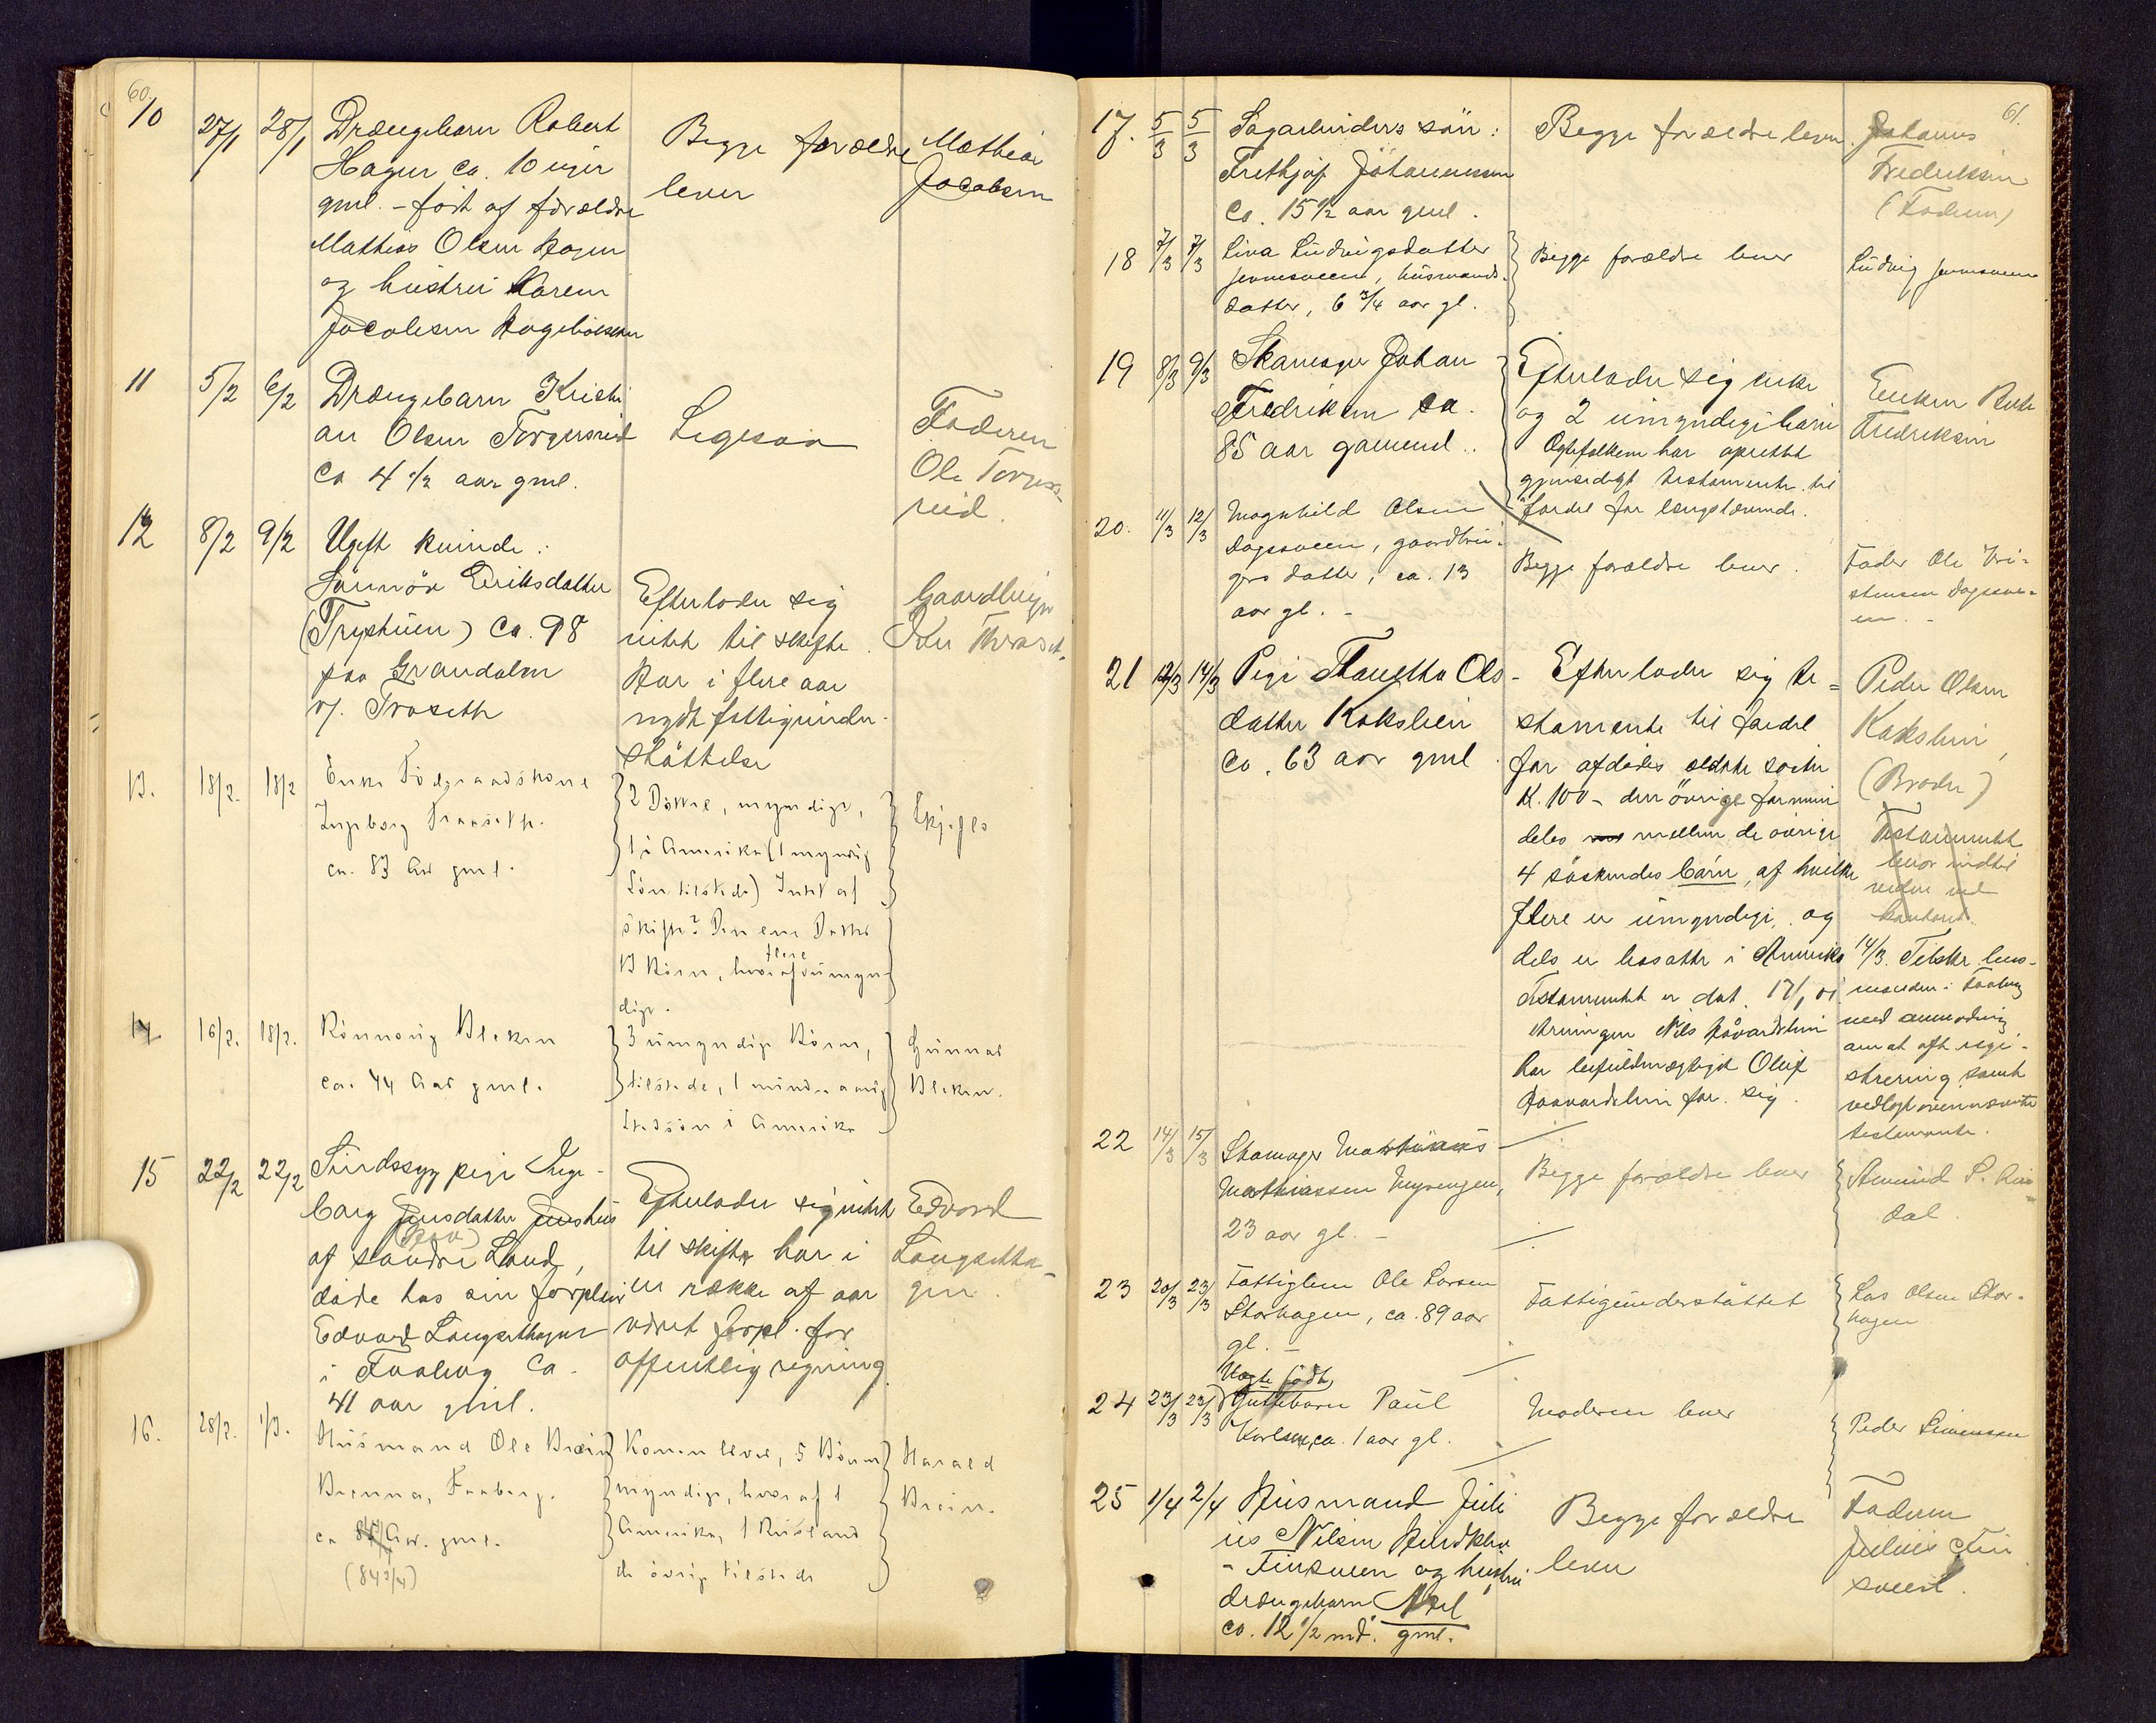 60.
10 27/1 28/1 Drængebarn Robert
Hagen ca. 10 uger
gml. – født af forældre
Mathias Olsen Hagen
og hustru Karen
Jacobsen
Begge forældre
lever
Mathias
Jacobsen
11 5/2 6/2 Drængebarn Kristi
an Olsen Torgersrud
ca 4 1/2 aar gml.
Ligesaa
Faderen
Ole Torgers-
rud.
12 8/2 9/2 Ugift kvinde:
Eriksdatter
ca. 98
paa Grandalen
v/. Traseth
Efterlader sig
intet til skifte.
Har i flere aar
nydt fattigunder-
støttelse
Gaardbruger
13. 18/2. 18/2 Enke Føderaadskone
Ingeborg Traaseth.
ca. 83 Aar gml.
2 Døttre, myndige,
1 i Amerika (1 myndig
Søn tilstede) Intet at
skifte? Den ene Datter
13 Børn, hvoraf flere umyn-
dige.
14 16/2. 18/2. Rønnaug Bleken
ca. 44 Aar gml.
3 umyndige Børn,
tilstede, 1 mindreaarig
Stedsøn i Amerika
Gunnar
Bleken.
15 22/2 22/2 Sindssyg pige Inge-
borg Jensdatter Jenshus
af søndre Land,
døde hos sin forpleier
Edvard Langsethagen
i Faaberg ca.
41 aar gml.
Efterlader sig intet
til skifte, har i
en række af aar
været forpl. for
offentlig regning
Edvard
Langsetha-
gen.
16. 28/2. 1/3. Husmand Ole Bræin
Brenna, Faaberg.
ca Aar. gml.
(84 3/4)
Konen lever, 5 Børn
myndige, hvoraf 1
Amerika, 1 Rusland
de øvrige tilstede
Harald
Bræin.
61.
17. 5/3 5/3 Sagarbeiders søn:
Frethjof Johannesen
ca. 15 1/2 aar gml.
Begge forældre lever.
Johannes
Fredriksen
(Faderen)
18 7/3 7/3 Liva Ludvigsdatter
Jevnesveen, husmands-
datter, 6 3/4 aar gl.
Begge forældre lever
Ludvig Jevnesveen
19 8/3 9/3 Skomager Johan
Fredriksen ca.
85 aar gammel.
Efterlader sig enke
og 2 umyndige barn
Egtefolkene har oprettet
gjensidigt testamente til
fordel for længstlevende.
Enken
Fredriksen
20. 11/3 12/3 Magnhild Olsen
Dagssveen, gaardbru-
gers datter, ca. 13
aar gl. –
Begge forældre lever.
Fader Ole Kri-
stensen Dagssve-
en. –
21 12/3 14/3 Pige Ols-
datter Kokslien
ca. 63 aar gml
Efterlader sig te-
stamente til fordel
for afdødes ældste søster
K. 100 – den øvrige formue
deles mellem de øvrige
4 søskendes børn, af hvilke
flere er umyndige og
dels er bosatte i Amerika
Testamentet er dat. 17/1 01
Arvingen Nils Haavardslien
har befuldmægtiget Oluf
Haavardslien for sig.
Peder Olsen
Kokslien,
(Broder)
Testamentet
beror indtil
videre ved
kontoret
14/3. Tilskr. lens-
manden i Faaberg
med anmodning
om at aft regi-
strering samt
vedlagt ovennævnte
testamente.
22 14/3 15/3 Skomager
Mathiassen Myrengen,
23 aar gl. –
Begge forældre lever
Amund S. Lin-
dal
23 20/3 23/3 Fattiglem Ole Larsen
Storhagen, ca. 89 aar
gl. –
Fattigunderstøttet
Lars Olsen Stor-
hagen
24 23/3 23/3 Uægte født
Guttebarn Paul
Karlsen, ca. 1 aar gl.
Moderen lever
Peder Simensen
25 1/4 2/4 Husmand Juli
us Nilsen
– Finsveen og hustru
drængebarn
ca. 12 1/2 md. gml.
Begge forældre
lever
Faderen
Julius Fin
sveen.